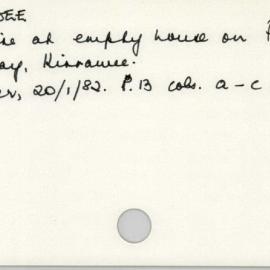 WEE
ire at empty house on P
ay, Kirrawee.
er, 20/1/82. P.13 cols. a-c